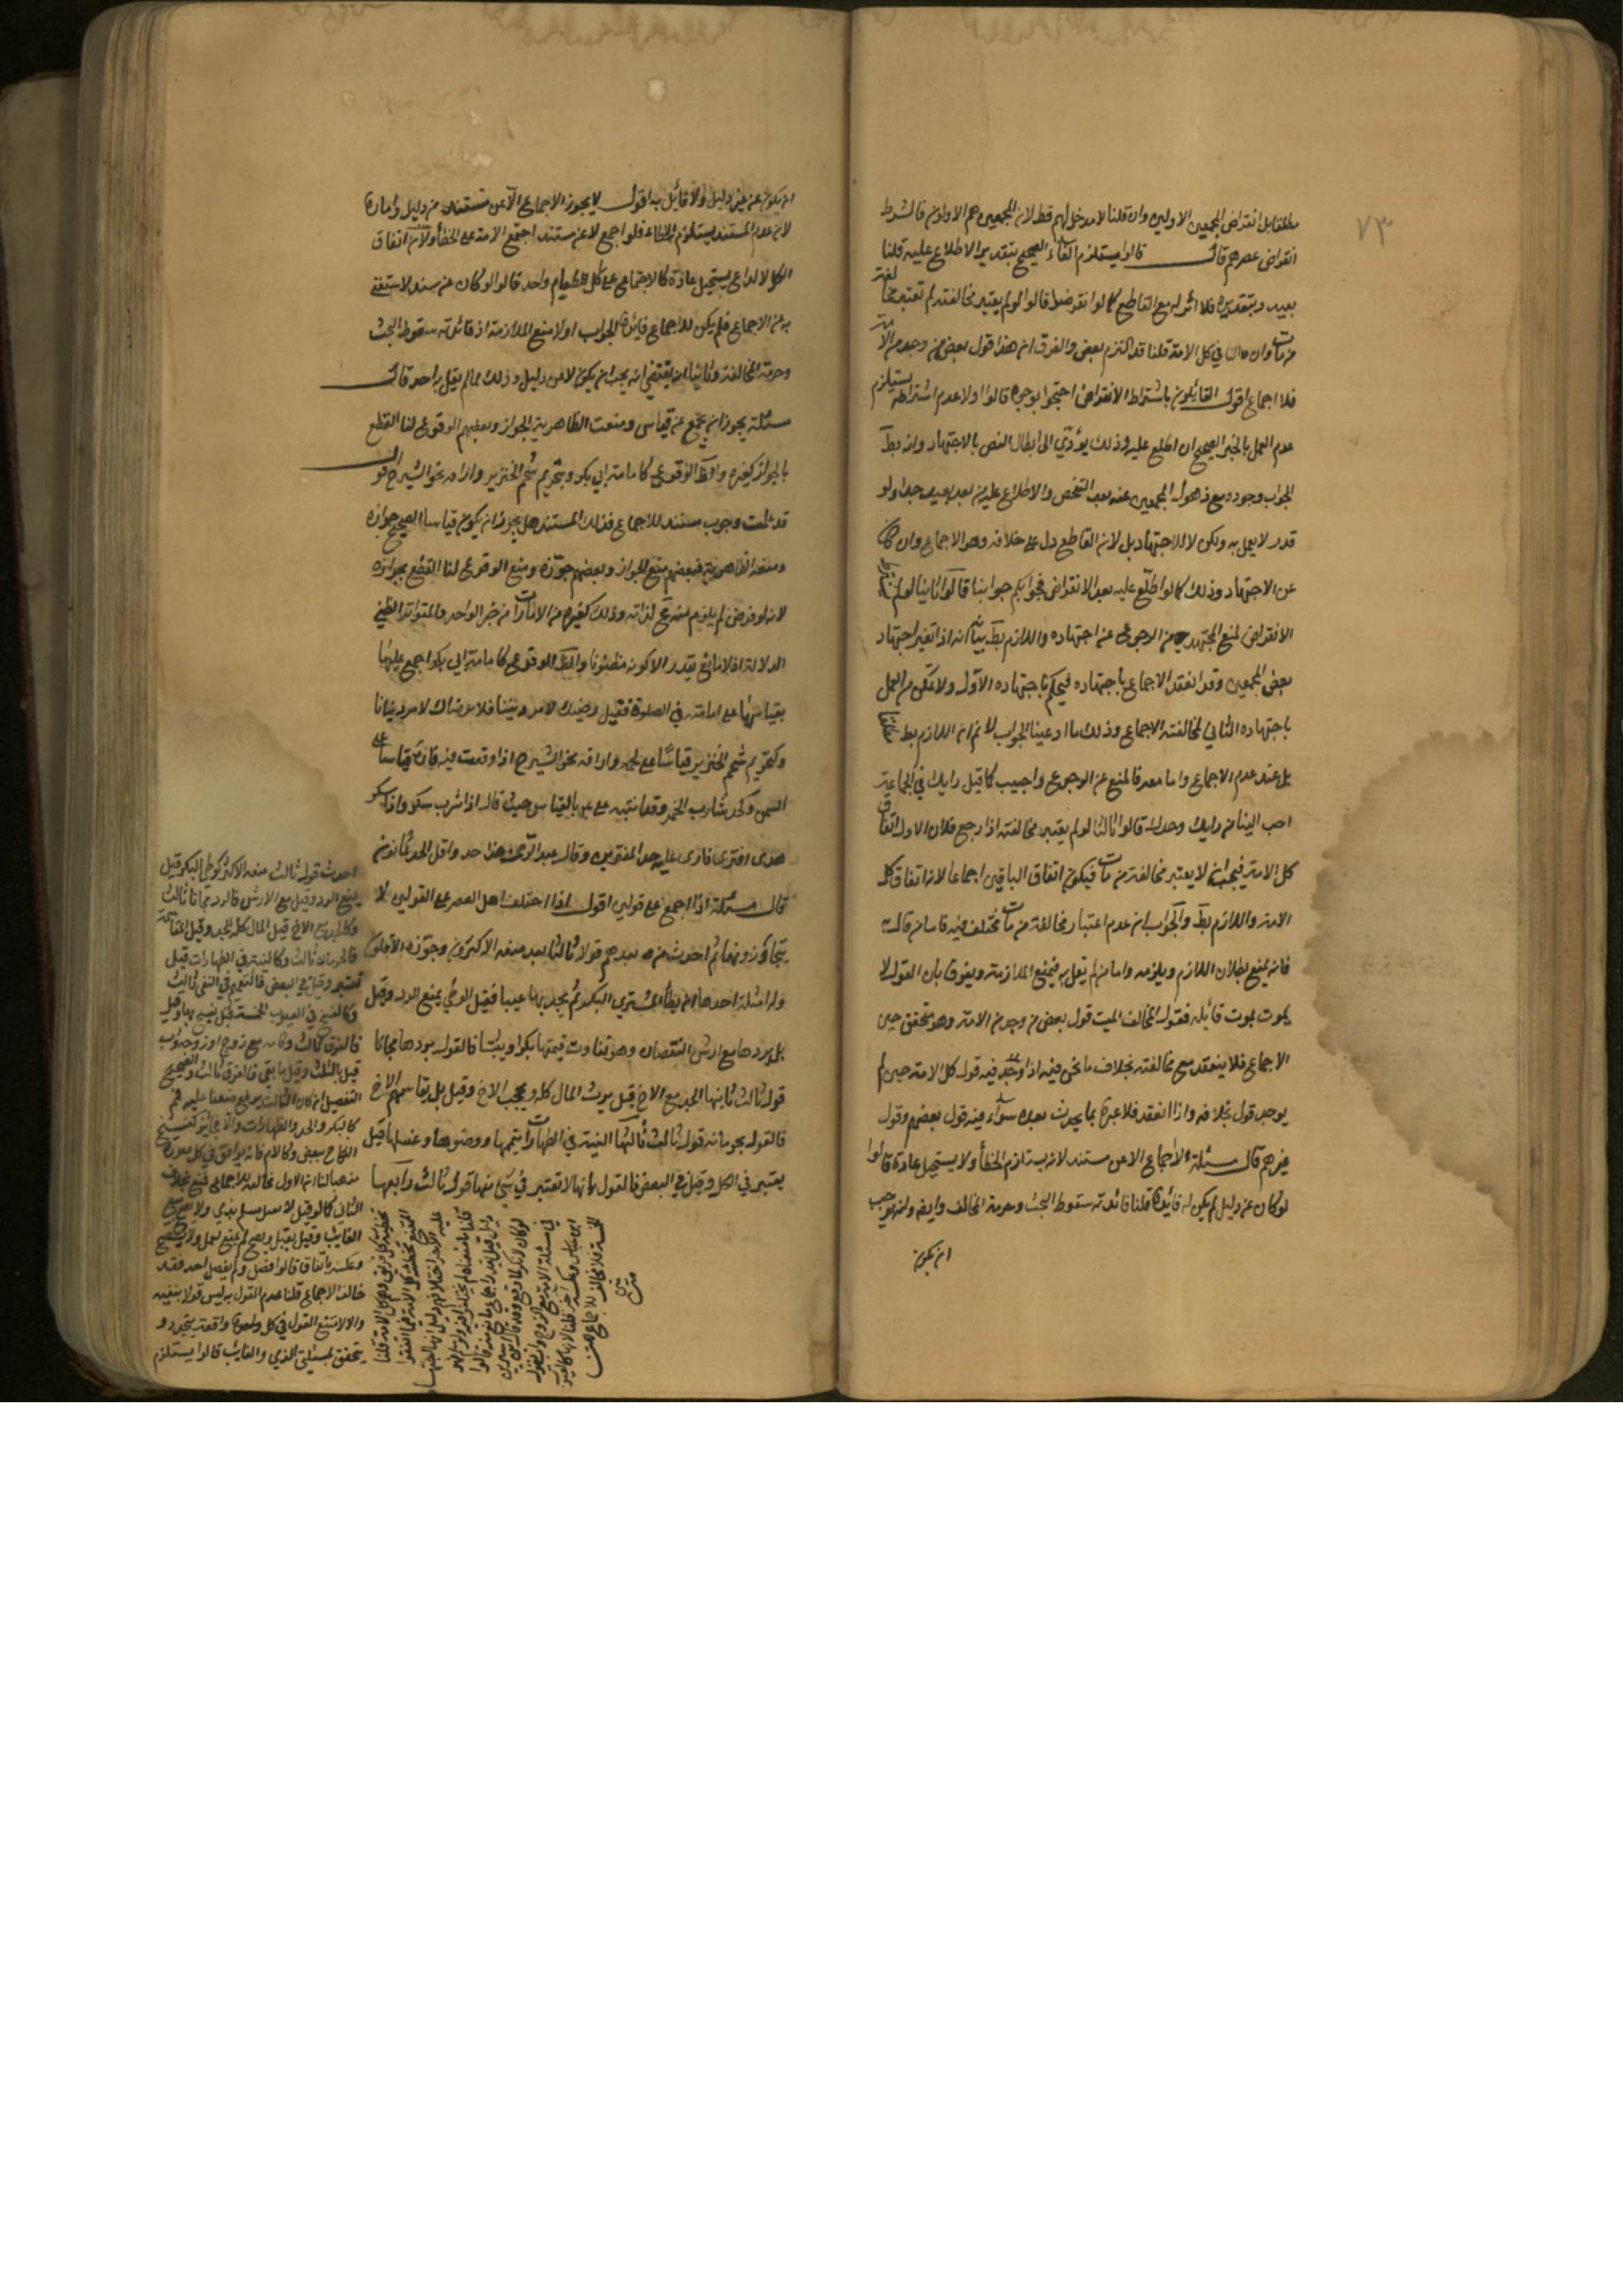 ٧٣
مطلقا بل انقراض المجمعين الاولين وان قلنا لا مدخل لهم قط لان المجمعين هم الاولون فالشرط
انقراض عصرهم قال قالوا يستلزم الغاء الصحيح بتقدير الاطلاع عليه قلنا
بعيد وبتقديره فلا اثر له مع القاطع كما لو انقرضوا قالوا لو لم يعتبر مخالفته لم تعتبر مخالفة
من مات وان الباقي كل الامة قلنا قد التزم بعض والفرق ان هذا قول بعض من وجد من الامة
فلا اجماع اقول القائلون باشتراط الانقراض احتجوا بوجوه قالوا اولا عدم اشتراطه يستلزم
عدم العمل بالخبر الصحيح ان اطلع عليه وذلك يؤدي الى ابطال النص بالاجتهاد وانه بط
الجواب وجوده مع ذهول المجمعين عنه بعد التفحص والاطلاع عليه من بعد بعيد جدا ولو
قدر لا يعمل به ولكن لا للاجتهاد بل لان القاطع دل على خلافه وهو الاجماع وان كان
عن الاجتهاد وذلك كما لو اطلع عليه بعد الانقراض فجوابكم جوابنا قالوا ثانيا لو لم يشترط
الانقراض لمنع المجتهد من الرجوع عن اجتهاده واللازم بط بيانه انه اذا تغير اجتهاد
بعض المجمعين وقد انعقد الاجماع باجتهاده فيحكم باجتهاده الاول ولا يمكن من العمل
باجتهاده الثاني لمخالفته الاجماع وذلك ما ادعينا الجواب لا نم ان اللازم بط مطلقا
بل عند عدم الاجماع واما معه فالمنع عن الرجوع واجب كما قيل رايك في الجماعة
احب الينا من رايك وحدك قالوا ثالثا لو لم يعتبر مخالفته اذا رجع فلان الاول اتفاق
كل الامة فيجب ان لا يعتبر مخالفة من مات فيكون اتفاق الباقين اجماعا لانه اتفاق كل
الامة واللازم بط والجواب ان عدم اعتبار مخالفة من مات مختلف فيه فاما من قال به
فانه يمنع بطلان اللازم ويلزمه واما من لم يقل به فيمنع الملازمة ويفرق بان القول لا
يموت بموت قائله فقول المخالف الميت قول بعض من وجد من الامة وهو متحقق حين
الاجماع فلا ينعقد مع مخالفته بخلاف ما نحن فيه اذا وجد فيه قول كل الامة حين لم
يوجد قول بخلافه واذا انعقد فلا عبرة بما يحدث بعده سواء فيه قول بعضهم وقول
غيرهم قال مسئلة لا اجماع الا عن مستند لانه يستلزم الخطأ ولا يستحيل عادة قالوا
لو كان عن دليل لم يكن له فائدة قلنا فائدته سقوط البحث وحرمة المخالف وايضا وانه يوجب
ان يكون
ان يكون عن غير دليل ولا قائل به اقول لا يجوز الاجماع الا عن مستند من دليل وامارة
لان عدم المستند يستلزم الخطاء فلو اجمع لا عن مستند اجتمع الامة على الخطأ ولان اتفاق
الكل لا لداع يستحيل عادة كالاجتماع على كل طعام واحد قالوا لو كان عن سند لاستغنى
به عن الاجماع فلم يكن للاجماع فائدة الجواب اولا منع الملازمة اذ فائدته سقوط البحث
وحرمة المخالفة وثانيا انه يقتضي انه يجب ان يكون لا عن دليل وذلك مما لم يقل به احد قال
مسئلة يجوز ان يجمع عن قياس ومنعت الظاهرية الجواز وبعضهم الوقوع لنا القطع
بالجواز كغيره والظ الوقوع كامامة ابي بكر وتحريم شحم الخنزير واراقة نحو الشيرج اقول
قد علمت وجوب مستند للاجماع فذلك المستند هل يجوز ان يكون قياسا الصحيح جوازه
ومنعه الظاهرية فبعضهم منع الجواز وبعضهم جوزه ومنع الوقوع لنا القطع بجوازه
لانه لو فرض لم يلزم منه مح لذاته وذلك كغيره من الامارات من خبر الواحد والمتواتر الظني
الدلالة اذ لا مانع يقدر الا كونه مظنونا والظ الوقوع كامامة ابي بكر اجمع عليها
بقياسها على امامته في الصلوة فقيل رضيك لامر ديننا فلا نرضاك لامر دنيانا
وكتحريم شحم الخنزير قياسا على لحمه واراقة نحو الشيرج اذا وقعت فيه فارة قياسا على
السمن وكحد شارب الخمر وقد اثبته على بالقياس حيث قال اذا شرب سكر واذا سكر
هذى افترى فارى عليه حد المفترين وقال عبد الرحمن هذا حد واقل الحد ثمانون
قال مسئلة اذا اجمع على قولين اقول اذا اختلف اهل العصر على القولين لا
يتجاوزونهما ثم احدث من بعدهم قولا ثالثا بعد منعه الاكثرون وجوزه الاقلون
وله امثلة احدها ان يطأ المشتري البكر ثم يجد بها عيبا فقيل الوطي يمنع الرد وقيل
بل يردها مع ارش النقصان وهو تفاوت قيمتها بكرا وثيبا فالقول بردها مجانا
قول ثالث ثانيها الجد مع الاخ قيل يرث المال كله ويحجب الاخ وقيل بل يقاسم الاخ
فالقول بحرمانه قول ثالث ثالثها النية في الطهارات تيممها ووضوءها وغسلها قيل
يعتبر في الكل وقيل في البعض فالقول بانها لا تعتبر في شئ منها قول ثالث رابعها
احدث قول ثالث منعه الاكثر كوطي البكر قيل
يمنع الرد وقيل مع الارش فالرد مجانا ثالث
وكالجد مع الاخ قيل المال كله للجد وقيل المقاسمة
فالحرمان ثالث وكالنية في الطهارات قيل
تعتبر وقيل في البعض فالتعميم في النفي ثالث
وكالفسخ في العيوب الخمسة قيل يفسخ بها وقيل لا
فالفرق ثالث وكام مع زوج او زوجة واب
قيل بالثلث وقيل ما بقي فالفرق ثالث والصحيح
التفصيل ان كان الثالث يرفع متفقا عليه فمم
كالبكر والجد والطهارات والا فجائز كفسخ
النكاح ببعض وكالام فانه يوافق في كل صورة
مذهبا لنا ان الاول مخالفه للاجماع فمنع بخلاف
الثاني كما لو قيل لا يقتل مسلم بذمي ولا يصح بيع
الغائب وقيل يقتل ويصح لم يمنع يقتل ولا يصح
وعكسه باتفاق قالوا فصل ولم يفصل احد فقد
خالف الاجماع قلنا عدم القول به ليس قولا بنفيه
والا لامتنع القول في كل واقعة تتجدد و
يتحقق بمسئلتي الذمي والغائب قالوا يستلزم
تخطئة كل فريق وهم كل الامة قلنا
الممتنع تخطئة كل الامة فيما اتفقوا
عليه